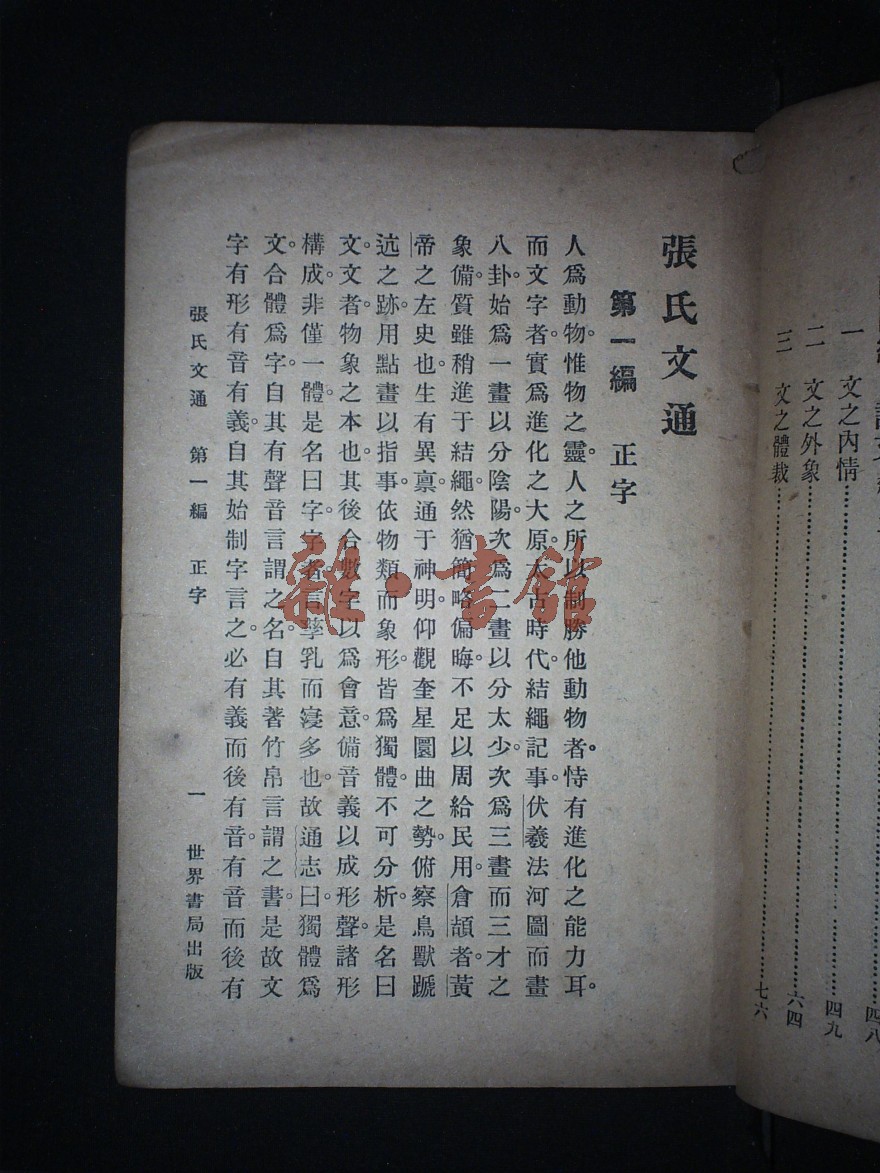 四八
一 文之內情……四九
二 文之外象……六四
三 文之體裁……七六
張氏文通
第一編 正字
人爲動物。惟物之靈。人之所以制勝他動物者。恃有進化之能力耳。
而文字者。實爲進化之大原。太古時代。結繩記事。伏羲法河圖而畫
八卦。始爲一畫以分陰陽。次爲二畫以分太少。次爲三畫而三才之
象備。質雖稍進于結繩。然猶簡略偏晦。不足以周給民用。倉頡者。黃
帝之左史也。生有異禀。通于神明。仰觀奎星圜曲之勢。俯察鳥獸蹏
迒之跡。用點畫以指事。依物類而象形。皆爲獨體。不可分析。是名曰
文。文者。物象之本也。其後合數字以爲會意。備音義以成形聲。諸形
構成。非僅一體。是名曰字。字者。言孳乳而寖多也。故通志曰。獨體爲
文。合體爲字。自其有聲音言謂之名。自其著竹帛言謂之書。是故文
字有形有音有義。自其始制字言之。必有義而後有音。有音而後有
張氏文通 第一編 正字 一 世界書局出版
雜·書館